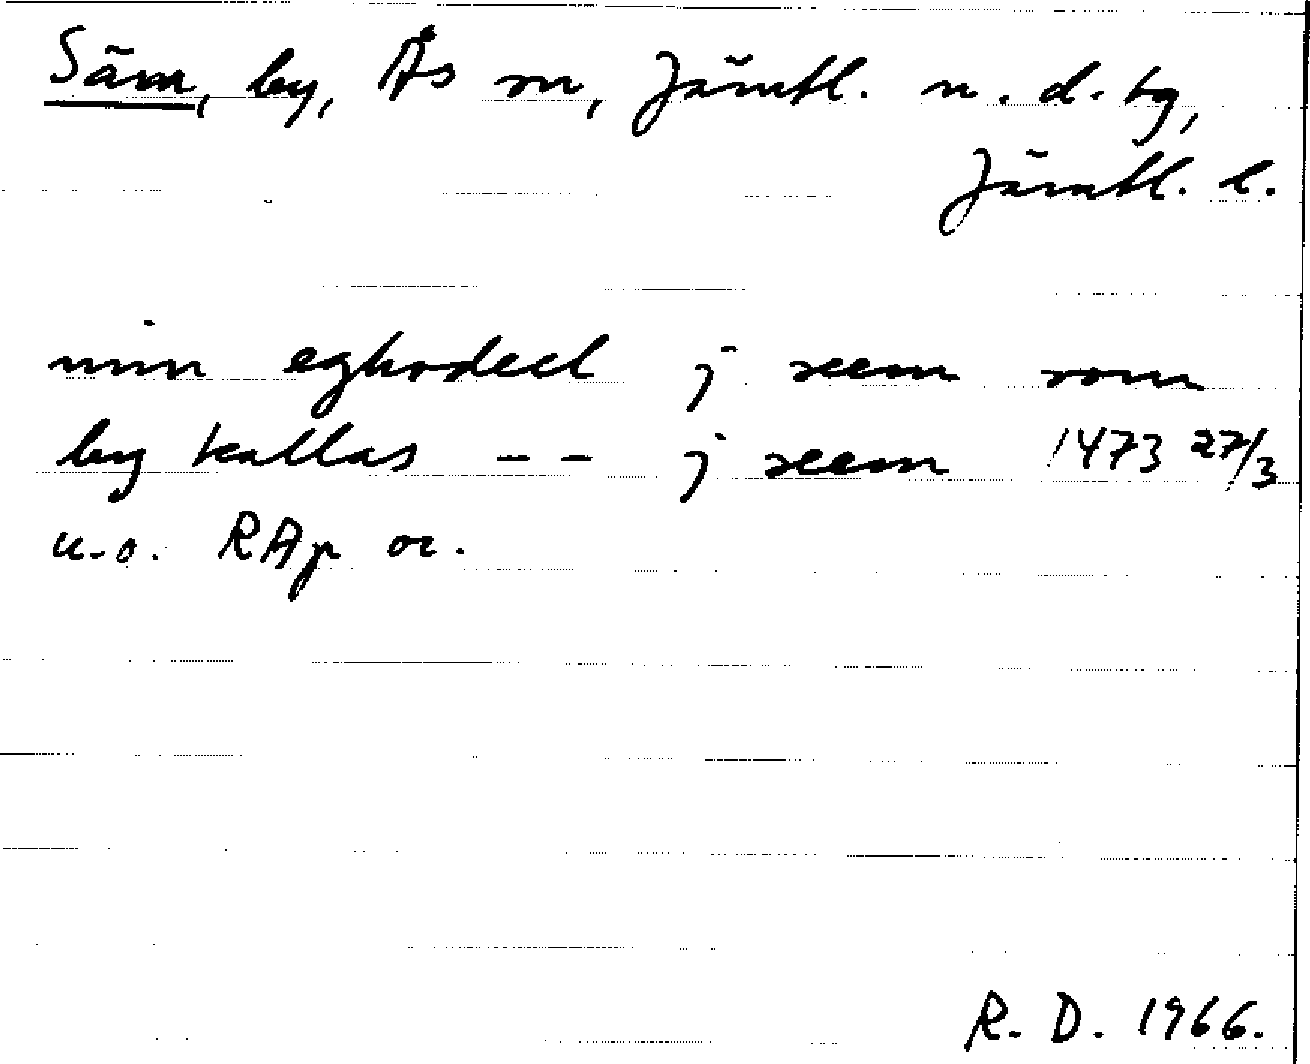 Säm, by, Ås sn, Jämtl. n. d. tg,
Jämtl. l.
min eghodeel j seem som
by kallas -- j seem 1473 27/3
u.o. RAp or.
R. D. 1966.